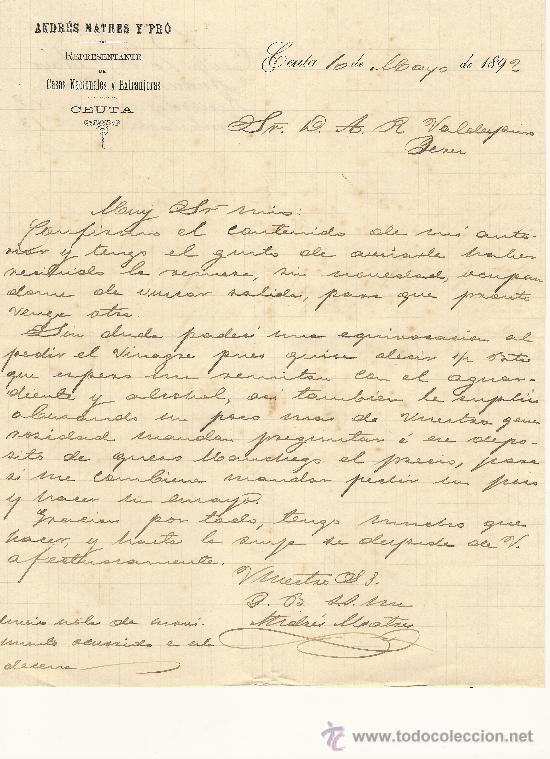 ANDRÉS MATRES Y PRÓ
REPRESENTANTE
DE
Casas Nacionales y Extranjeras
CEUTA
Ceuta 10 de Mayo de 1892
Sr. D. A. R. Valdespino
Jerez
Muy Sr mio:
Confirmo el contenido de mi ante-
rior y tengo el gusto de avisarle haber
recibido la remesa, sin novedad, ocupan
dome de buscar salida, para que pronto
venga otra.
Sin duda padecí una equivocacion al
pedir el Vinagre pues quise decir
que espero me remitan con el aguar-
diente y alcohol, asi tambien le suplico
abusando un poco mas de Vuestra gene
rosidad mandar preguntar á ese depo-
sito de queso Manchego el precio, para
si me combiene mandar pedir un poco
y hacer un ensayo.
Gracias por todo, tengo mucho que
hacer, y hasta la suya se despide de V.
afectuosamente.
Vuestro S. S.
Q. B. S. M.
Andrés Matres
nota de movi
miento ocurrido en esta
decena
www.todocoleccion.net